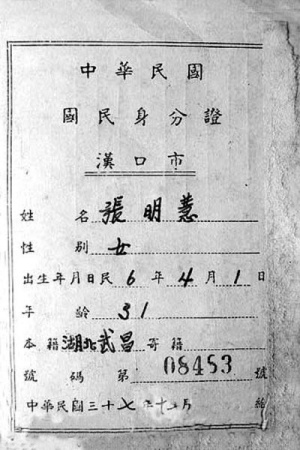 中華民國
國民身分證
漢口市
姓名 張明蕙
性別 女
出生年月日民 6 年 4 月 1 日
年齡 31
本籍 湖北武昌 寄籍
號碼 第 08453 號
中華民國三十七年十二月